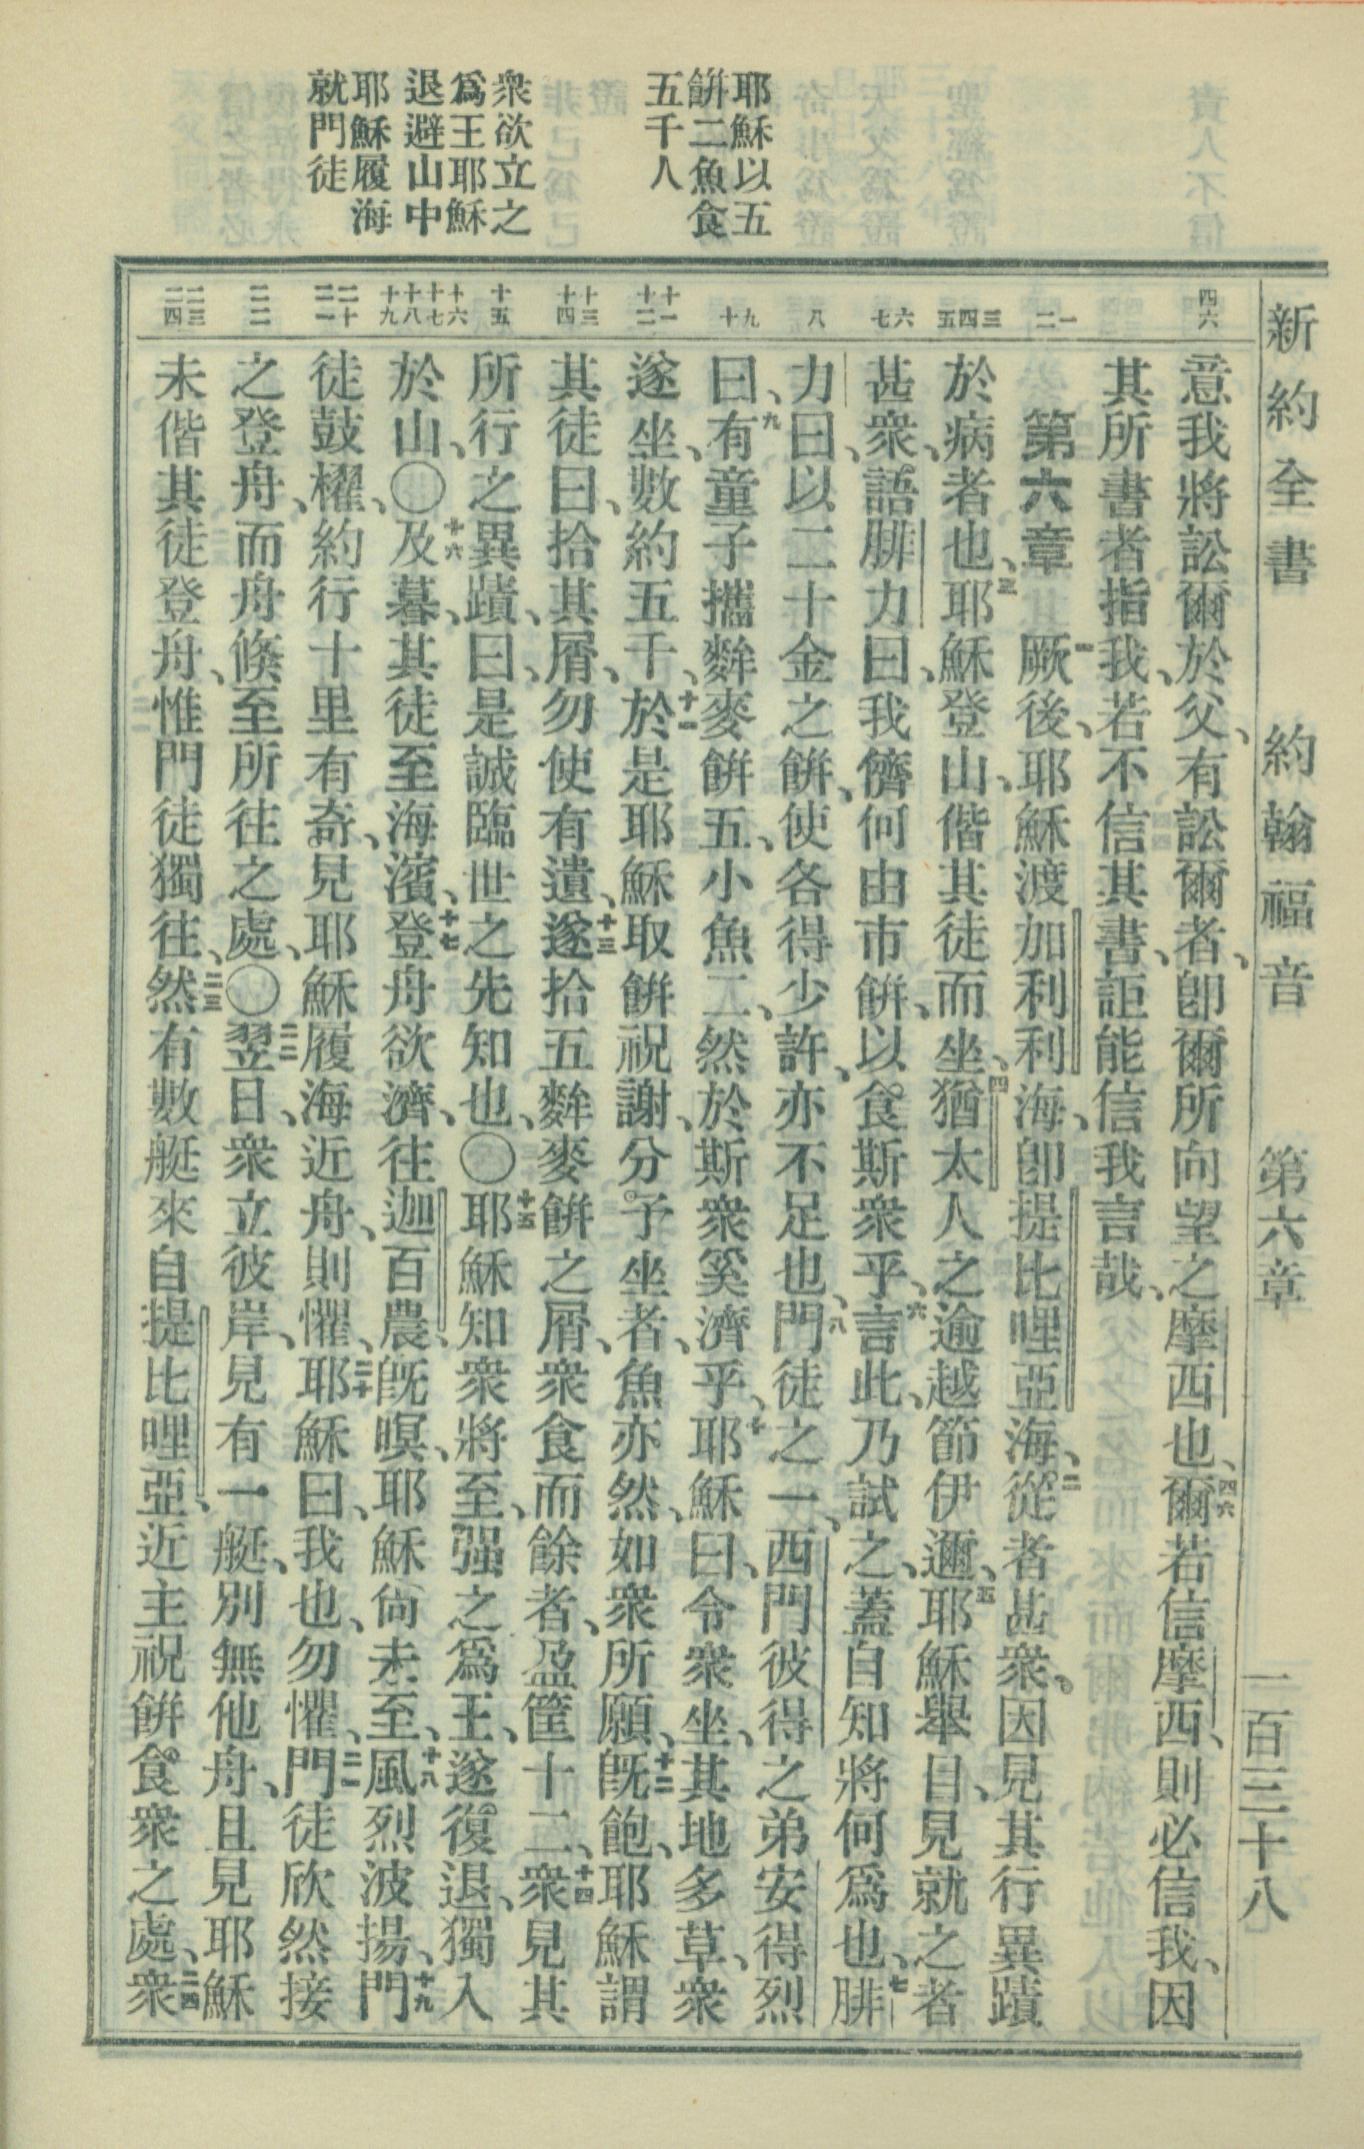 新約全書　約翰福音　第六章　一百三十八
耶穌以五
餅二魚食
五千人
衆欲立之
爲王耶穌
退避山中
耶穌履海
就門徒
四六
一二
三四五
六七
八
九十
十一十二
十三十四
十五
十六十七十八十九
二十二一
二二
二三二四
意我將訟爾於父、有訟爾者、卽爾所向望之摩西也、四六爾若信摩西、則必信我、因
其所書者指我、若不信其書、詎能信我言哉、
第六章　一厥後、耶穌渡加利利海、卽提比哩亞海、二從者甚衆、因見其行異蹟
於病者也、三耶穌登山、偕其徒而坐、四猶太人之逾越節伊邇、五耶穌舉目、見就之者
甚衆、語腓力曰、我儕何由市餅、以食斯衆乎、六言此、乃試之、蓋自知將何爲也、七腓
力曰、以二十金之餅、使各得少許、亦不足也、八門徒之一、西門彼得之弟安得烈
曰、九有童子攜麰麥餅五、小魚二、然於斯衆奚濟乎、十耶穌曰、令衆坐、其地多草、衆
遂坐、數約五千、十一於是耶穌取餅祝謝、分予坐者、魚亦然、如衆所願、十二旣飽、耶穌謂
其徒曰、拾其屑、勿使有遺、十三遂拾五麰麥餅之屑、衆食而餘者、盈筐十二、十四衆見其
所行之異蹟、曰、是誠臨世之先知也、〇十五耶穌知衆將至、强之爲王、遂復退、獨入
於山、〇十六及暮、其徒至海濱、十七登舟欲濟、往迦百農、旣暝、耶穌尙未至、十八風烈波揚、十九門
徒鼓櫂、約行十里有奇、見耶穌履海近舟、則懼、二十耶穌曰、我也、勿懼、二一門徒欣然接
之登舟、而舟倏至所往之處、〇二二翌日、衆立彼岸、見有一艇、別無他舟、且見耶穌
未偕其徒登舟、惟門徒獨往、二三然有數艇來自提比哩亞、近主祝餅食衆之處、二四衆